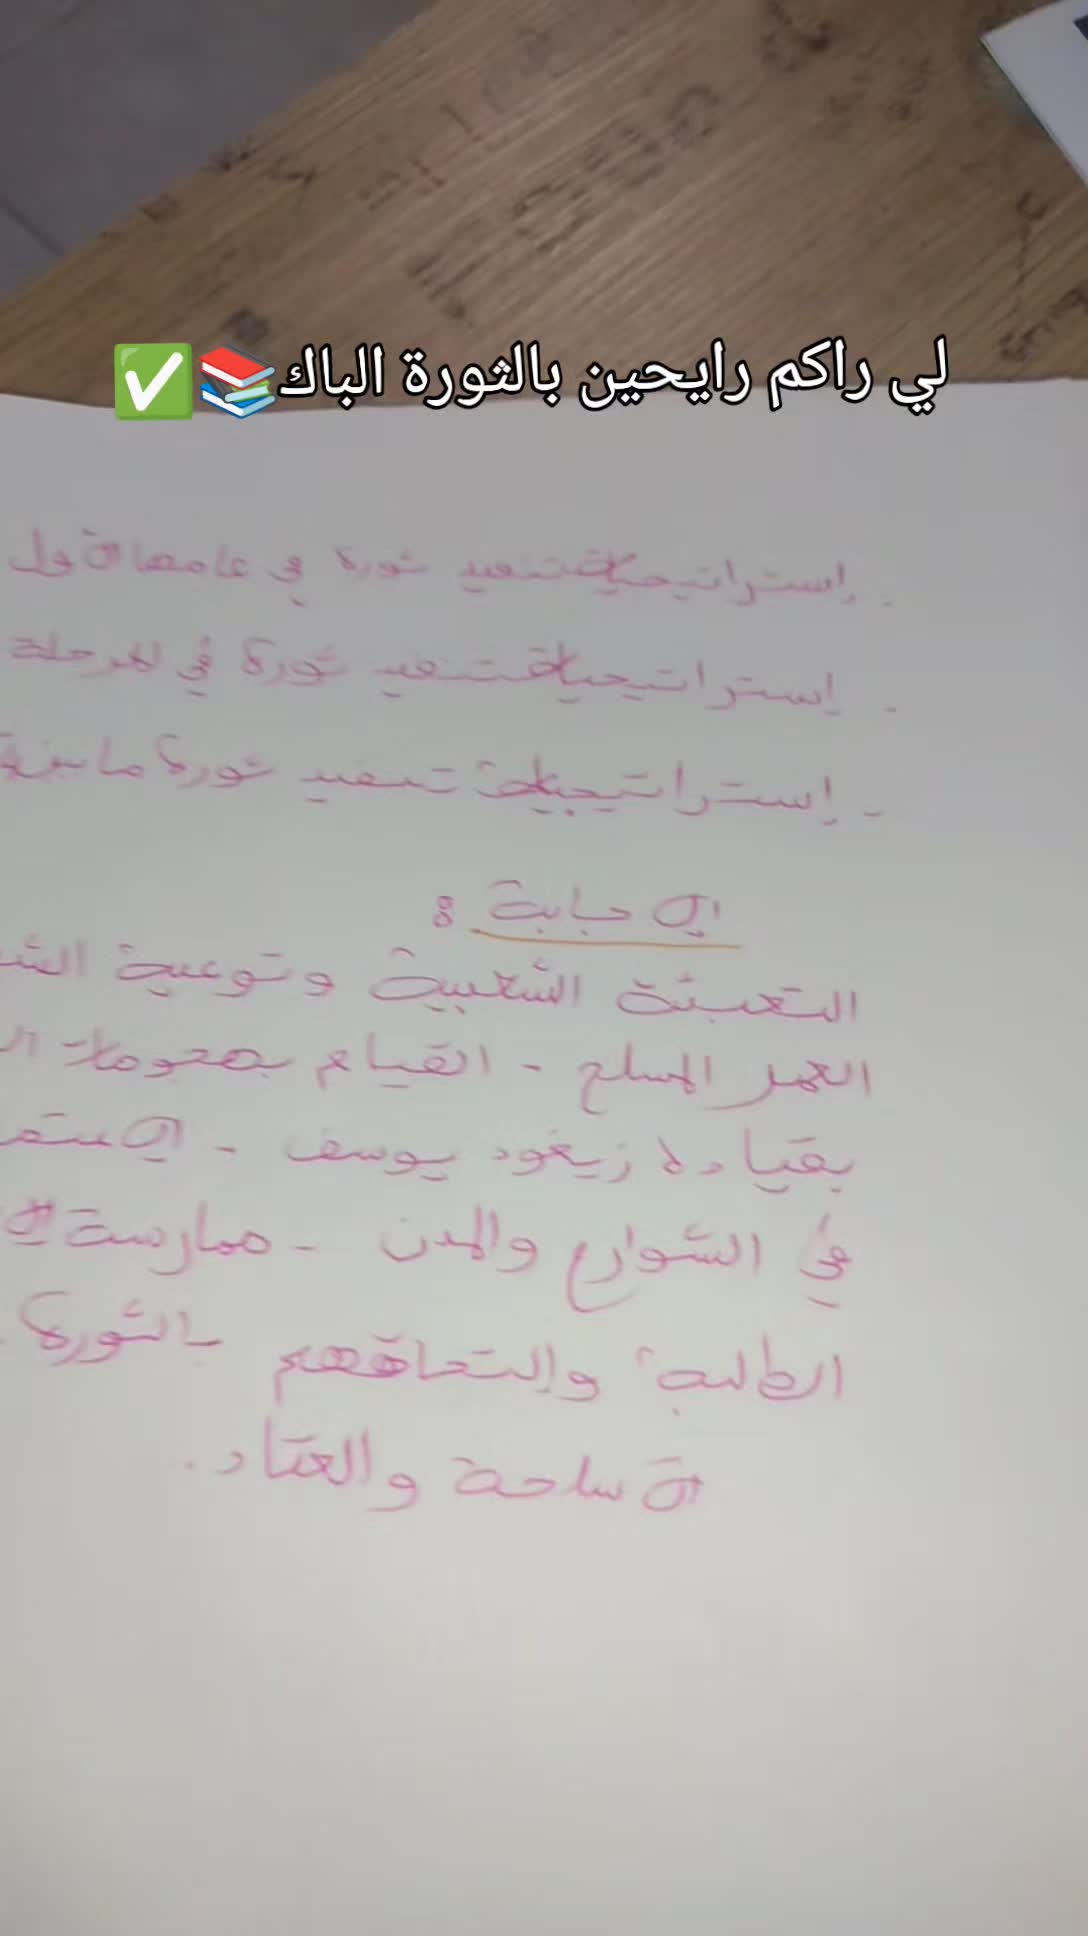 لي راكم رايحين بالثورة الباك📚✅
- إستراتيجية تنفيد ثورة في عامها الأول
- إستراتيجية تنفيد ثورة في المرحلة
- إستراتيجية تنفيد ثورة ما بين
الإجابة :
التعبئة الشعبية وتوعية
العمل المسلح - القيام بهجومات
بقيادة زيغود يوسف -
في الشوارع والمدن - ممارسة
الطلبة والتحاقهم بالثورة.
الأسلحة والعتاد.